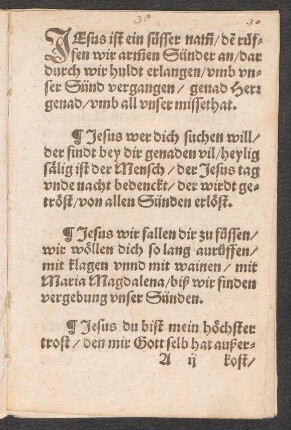 30
30
JEsus ist ein süsser nam̃/ dẽ růf-
fen wir armen Sünder an/ dar
durch wir huldt erlangen/ vmb vn-
ser Sünd vergangen/ genad Her:
genad/ vmb all vnser missethat.
¶ Jesus wer dich suchen will/
der findt bey dir genaden vil/ heylig
sälig ist der Mensch/ der Jesus tag
vnde nacht bedenckt/ der wirdt ge-
tröst/ von allen Sünden erlöst.
¶ Jesus wir fallen dir zu füssen/
wir wöllen dich so lang anrůffen/
mit klagen vnnd mit wainen/ mit
Maria Magdalena/ biß wir finden
vergebung vnser Sünden.
¶ Jesus du bist mein höchster
trost/ den mir Gott selb hat außer-
A ij kost/